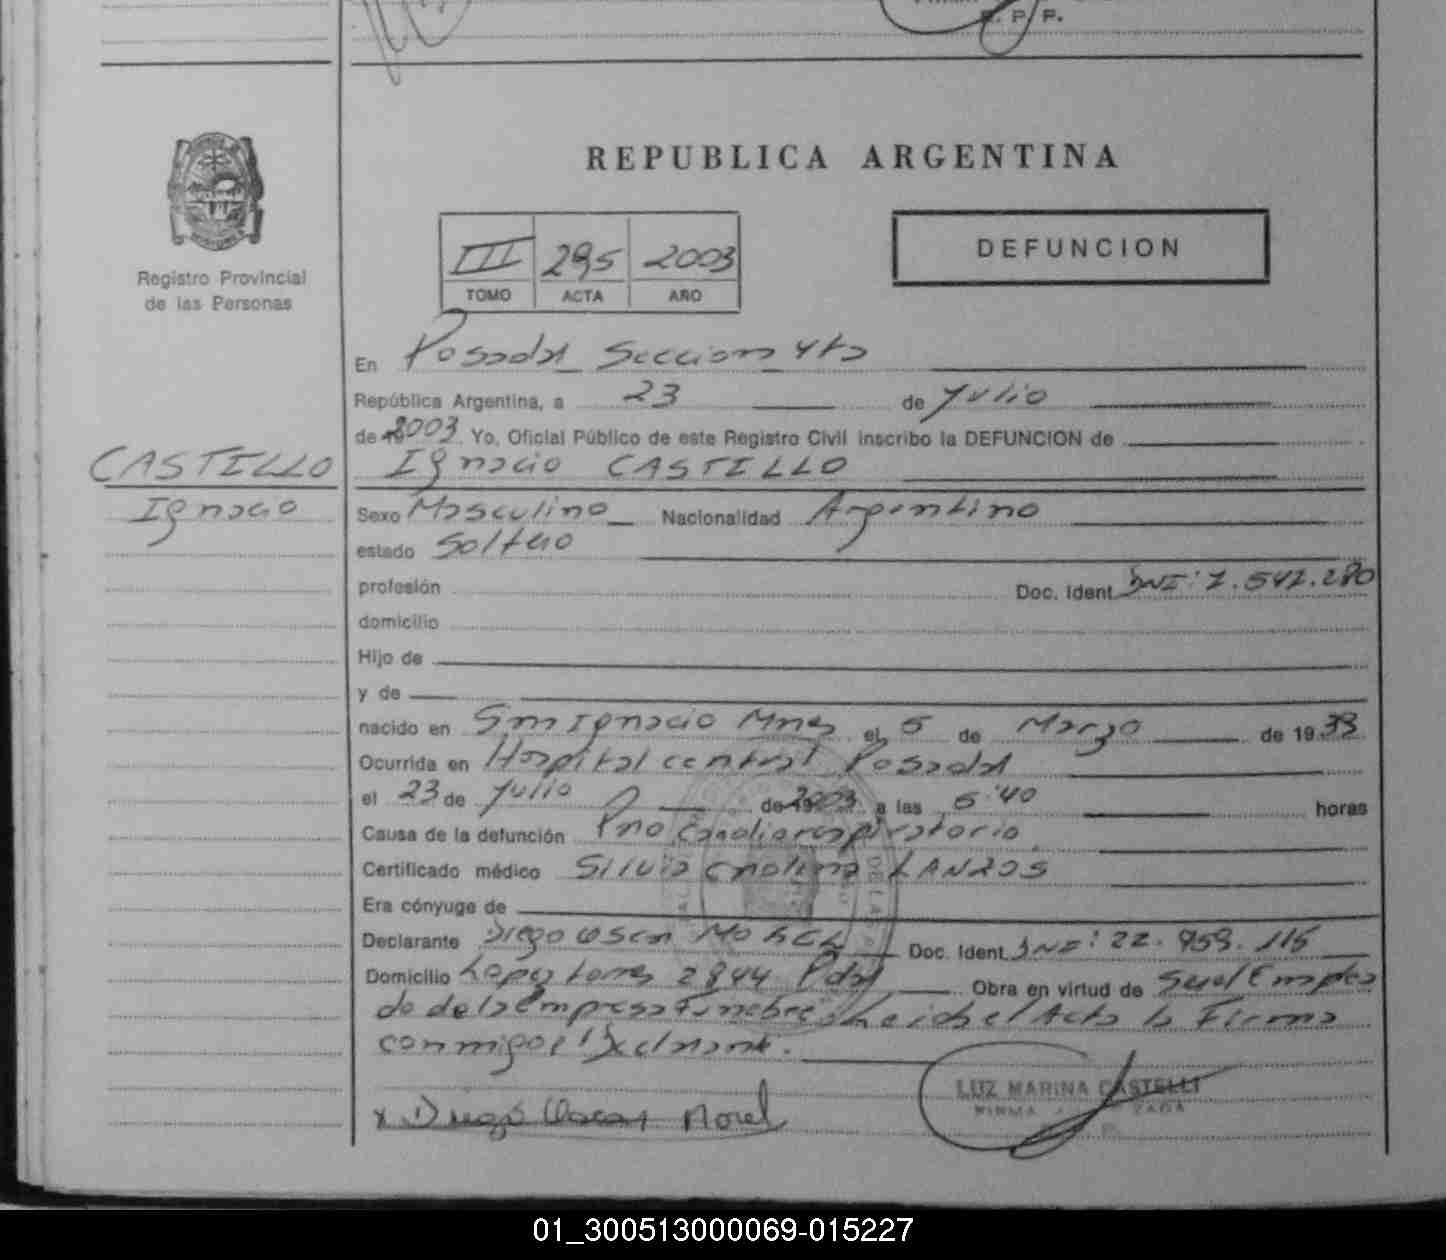 P. P.
REPUBLICA ARGENTINA
Registro Provincial
de las Personas
III 295 2003
TOMO ACTA AÑO
DEFUNCION
En Posadas Seccion 4ta
República Argentina, a 23 de Julio
de 2003 Yo, Oficial Público de este Registro Civil inscribo la DEFUNCION de
CASTILLO
Ignacio
Ignacio CASTILLO
Sexo Masculino Nacionalidad Argentino
estado Soltero
profesión Doc. Ident. DNI: 7.542.280
domicilio
Hijo de
y de
nacido en San Ignacio Mnes el 5 de Marzo de 19
Ocurrida en Hospital central Posadas
el 23 de Julio de 2003 a las 5:40 horas
Causa de la defunción Paro Cardiorespiratorio
Certificado médico Silvia LANZOS
Era cónyuge de
Declarante Diego Oscar MOREL Doc. Ident. DNI: 22.959.115
Domicilio Lopez torres 2844 Pdas Obra en virtud de Ser el Emplea
do de la Empresa Funebre. Leida el Acta la Firma
conmigo el Declarante.
x Diego Oscar Morel
LUZ MARINA CASTELLI
FIRMA
01_300513000069-015227